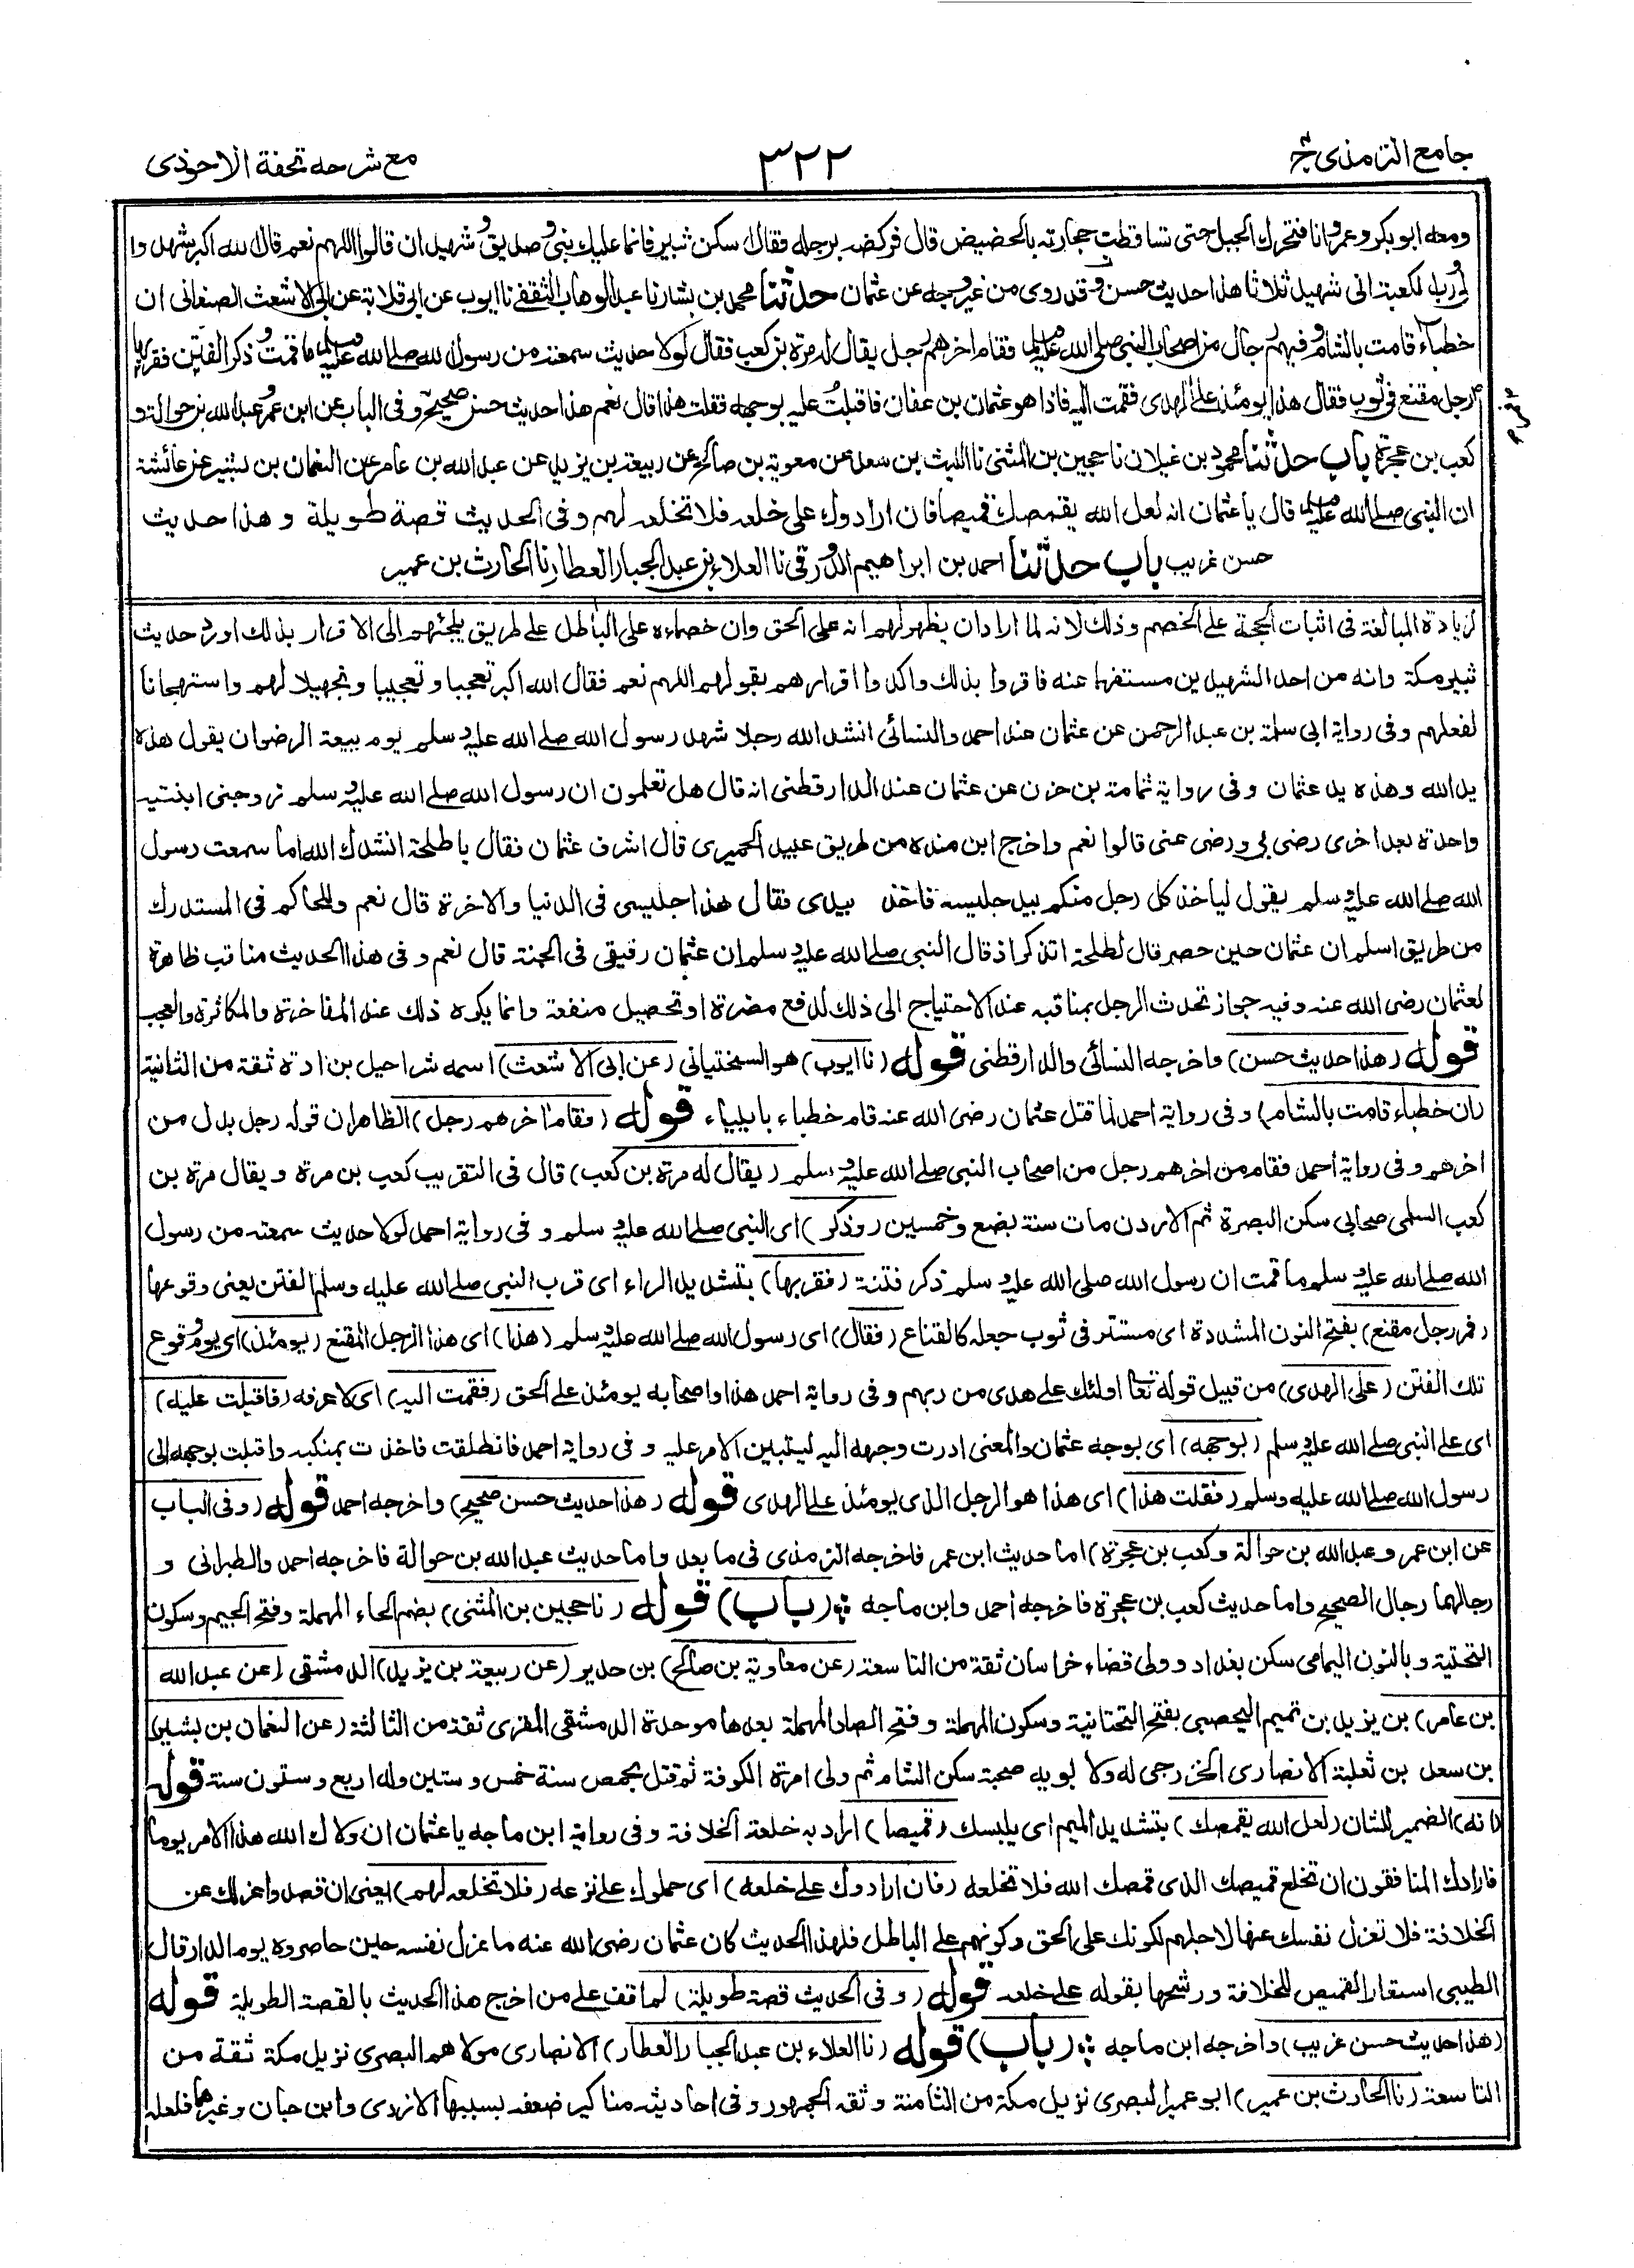 جامع الترمذى ج۴
۳۲۲
مع شرحه تحفة الاحوذى
ومعه ابو بكر وعمر وانا فتحرك الجبل حتى تساقطت حجارته بالحضيض قال فركضه برجله فقال اسكن ثبير فانما عليك نبى وصديق وشهيدان قالوا اللهم نعم قال الله اكبر شهدوا
لى ورب الكعبة انى شهيد ثلاثا هذا حديث حسن وقد روى من غير وجه عن عثمان حدثنا محمد بن بشار نا عبد الوهاب الثقفى نا ايوب عن ابى قلابة عن ابى الاشعث الصنعانى ان
خطباء قامت بالشام وفيهم رجال من اصحاب النبى صلى الله عليه وسلم فقام اخرهم رجل يقال له مرة بن كعب فقال لولا حديث سمعته من رسول الله صلى الله عليه وسلم ما قمت وذكر الفتن فقربها
فمر رجل مقنع فى ثوب فقال هذا يومئذ على الهدى فقمت اليه فاذا هو عثمان بن عفان فاقبلت عليه بوجهه فقلت هذا قال نعم هذا حديث حسن صحيح وفى الباب عن ابن عمر وعبد الله بن حوالة و
كعب بن عجرة باب حدثنا محمود بن غيلان نا حجين بن المثنى نا الليث بن سعد عن معوية بن صالح عن ربيعة بن يزيد عن عبد الله بن عامر عن النعمان بن بشير عن عائشة
ان النبى صلى الله عليه وسلم قال يا عثمان انه لعل الله يقمصك قميصا فان ارادوك على خلعه فلا تخلعه لهم وفى الحديث قصة طويلة وهذا حديث
حسن غريب باب حدثنا احمد بن ابراهيم الدورقى نا العلاء بن عبد الجبار العطار نا الحارث بن عمير
لزيادة المبالغة فى اثبات الحجة على الخصم وذلك لانه لما اراد ان يظهر لهم انه على الحق وان خصماءه على الباطل على طريق يلجئهم الى الاقرار بذلك اورد حديث
ثبير مكة وانه من احد الشهيدين مستفهما عنه فاقروا بذلك واكدوا اقرارهم بقولهم اللهم نعم فقال الله اكبر تعجبا وتعجيبا وتجهيلا لهم واستهجانا
لفعلهم وفى رواية ابى سلمة بن عبد الرحمن عن عثمان عند احمد والنسائى انشد الله رجلا شهد رسول الله صلى الله عليه وسلم يوم بيعة الرضوان يقول هذه
يد الله وهذه يد عثمان وفى رواية ثمامة بن حزن عن عثمان عند الدارقطنى انه قال هل تعلمون ان رسول الله صلى الله عليه وسلم زوجنى ابنتيه
واحدة بعد اخرى رضى بى ورضى عنى قالوا نعم واخرج ابن منده من طريق عبيد الحميرى قال اشرف عثمان فقال يا طلحة انشدك الله اما سمعت رسول
الله صلى الله عليه وسلم يقول لياخذ كل رجل منكم بيد جليسه فاخذ بيدى فقال هذا جليسى فى الدنيا والاخرة قال نعم وللحاكم فى المستدرك
من طريق اسلم ان عثمان حين حصر قال لطلحة اتذكر اذ قال النبى صلى الله عليه وسلم ان عثمان رفيقى فى الجنة قال نعم وفى هذا الحديث مناقب ظاهرة
لعثمان رضى الله عنه وفيه جواز تحدث الرجل بمناقبه عند الاحتياج الى ذلك لدفع مضرة او تحصيل منفعة وانما يكره ذلك عند المفاخرة والمكاثرة والعجب
قوله (هذا حديث حسن) واخرجه النسائى والدارقطنى قوله (نا ايوب) هو السختيانى (عن ابى الاشعث) اسمه شراحيل بن ادة ثقة من الثانية
(ان خطباء قامت بالشام) وفى رواية احمد لما قتل عثمان رضى الله عنه قام خطباء بايلياء قوله (فقام اخرهم رجل) الظاهر ان قوله رجل بدل من
اخرهم وفى رواية احمد فقام من اخرهم رجل من اصحاب النبى صلى الله عليه وسلم (يقال له مرة بن كعب) قال فى التقريب كعب بن مرة ويقال مرة بن
كعب السلمى صحابى سكن البصرة ثم الاردن مات سنة بضع وخمسين (وذكر) اى النبى صلى الله عليه وسلم وفى رواية احمد لولا حديث سمعته من رسول
الله صلى الله عليه وسلم ما قمت ان رسول الله صلى الله عليه وسلم ذكر فتنة (فقربها) بتشديد الراء اى قرب النبى صلى الله عليه وسلم الفتن يعنى وقوعها
(فمر رجل مقنع) بفتح النون المشددة اى مستتر فى ثوب جعله كالقناع (فقال) اى رسول الله صلى الله عليه وسلم (هذا) اى هذا الرجل المقنع (يومئذ) اى يوم وقوع
تلك الفتن (على الهدى) من قبيل قوله تعا اولئك على هدى من ربهم وفى رواية احمد هذا واصحابه يومئذ على الحق (فقمت اليه) اى لاعرفه (فاقبلت عليه)
اى على النبى صلى الله عليه وسلم (بوجهه) اى بوجه عثمان والمعنى ادرت وجهه اليه ليتبين الامر عليه وفى رواية احمد فانطلقت فاخذت بمنكبه واقبلت بوجهه الى
رسول الله صلى الله عليه وسلم (فقلت هذا) اى هذا هو الرجل الذى يومئذ على الهدى قوله (هذا حديث حسن صحيح) واخرجه احمد قوله (وفى الباب
عن ابن عمر وعبد الله بن حوالة وكعب بن عجرة) اما حديث ابن عمر فاخرجه الترمذى فى ما بعد واما حديث عبد الله بن حوالة فاخرجه احمد والطبرانى و
رجالهما رجال الصحيح واما حديث كعب بن عجرة فاخرجه احمد وابن ماجه (باب) قوله (نا حجين بن المثنى) بضم الحاء المهملة وفتح الجيم وسكون
التحتية وبالنون اليمامى سكن بغداد وولى قضاء خراسان ثقة من التاسعة (عن معاوية بن صالح) بن حدير (عن ربيعة بن يزيد) الدمشقى (عن عبد الله
بن عامر) بن يزيد بن تميم اليحصبى بفتح التحتانية وسكون المهملة وفتح الصاد المهملة بعدها موحدة الدمشقى المقرى ثقة من الثالثة (عن النعمان بن بشير)
بن سعد بن ثعلبة الانصارى الخزرجى له ولابويه صحبة سكن الشام ثم ولى امرة الكوفة ثم قتل بحمص سنة خمس وستين وله اربع وستون سنة قوله
(انه) الضمير للشان (لعل الله يقمصك) بتشديد الميم اى يلبسك (قميصا) اراد به خلعة الخلافة وفى رواية ابن ماجه يا عثمان ان ولاك الله هذا الامر يوما
فارادك المنافقون ان تخلع قميصك الذى قمصك الله فلا تخلعه (فان ارادوك على خلعه) اى حملوك على نزعه (فلا تخلعه لهم) يعنى ان قصدوا عزلك عن
الخلافة فلا تعزل نفسك عنها لاجلهم لكونك على الحق وكونهم على الباطل فلهذا الحديث كان عثمان رضى الله عنه ما عزل نفسه حين حاصروه يوم الدار قال
الطيبى استعار القميص للخلافة ورشحها بقوله على خلعه قوله (وفى الحديث قصة طويلة) لم اقف على من اخرج هذا الحديث بالقصة الطويلة قوله
(هذا حديث حسن غريب) واخرجه ابن ماجه (باب) قوله (نا العلاء بن عبد الجبار العطار) الانصارى مولاهم البصرى نزيل مكة ثقة من
التاسعة (نا الحارث بن عمير) ابو عمير البصرى نزيل مكة من الثامنة وثقه الجمهور وفى احاديثه مناكير ضعفه بسببها الازدى وابن حبان وغيرهما فلعله